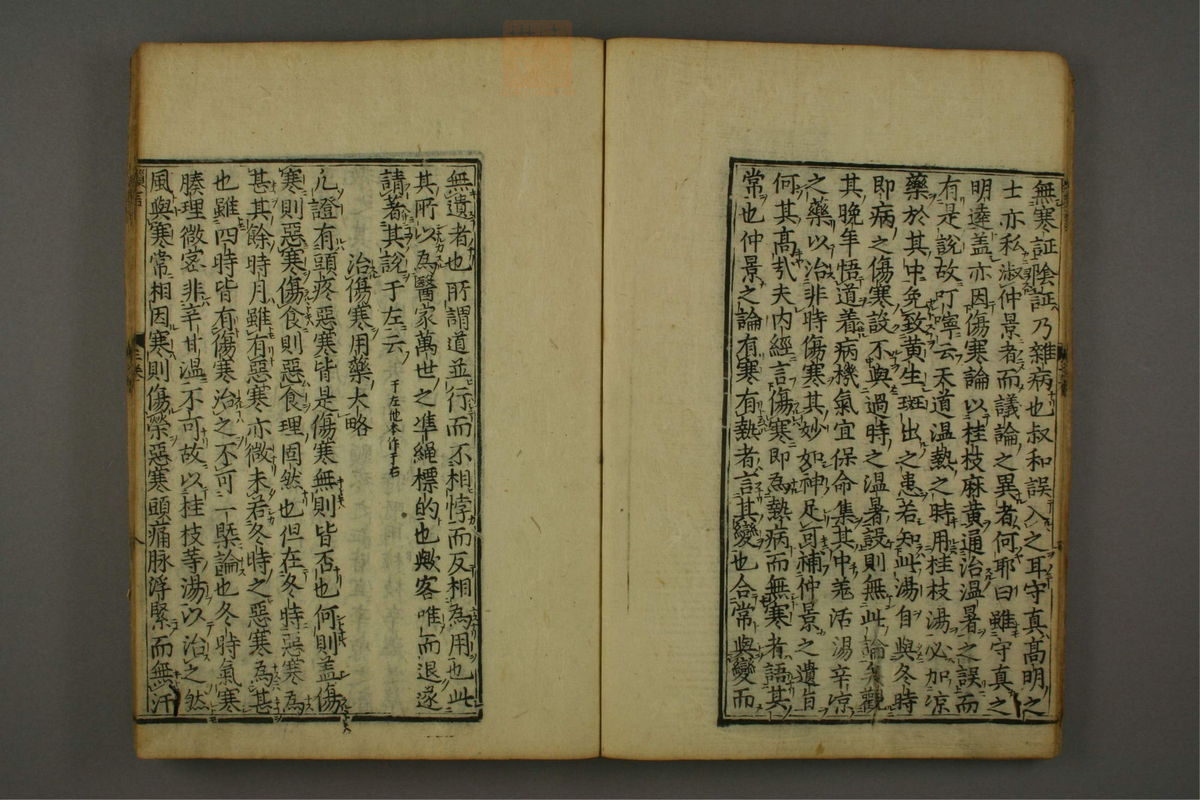 無寒証陰証乃雜病也叔和誤入之耳守真髙明之
士亦私淑仲景者而議論之異者何耶曰雖守真之
明達盖亦因傷寒論以桂枝麻黄通治温暑之誤而
有是說故叮嚀云天道温熱之時用桂枝湯必加凉
藥於其中免致黄生斑出之患若知此湯自與冬時
即病之傷寒設不與過時之温暑設則無此論矣觀
其晚年悟道着病機氣宜保命集其中羗活湯辛凉
之藥以治非時傷寒其妙如神足可補仲景之遺旨
何其髙㢤夫内經言傷寒即為熱病而無寒者語其
常也仲景之論有寒有熱者言其變也合常與變而
無遺者也所謂道並行而不相悖而反相為用也此
其所以為醫家萬世之凖繩標的也歟客唯而退遂
請著其說于左云 于左他本作于右
治傷寒用藥大略
凢證有頭疼惡寒皆是傷寒無則皆否也何則盖傷
寒則惡寒傷食則惡食理固然也但在冬時惡寒為
甚其餘時月雖有惡寒亦微未若冬時之惡寒為甚
也雖四時皆有傷寒治之不可一槩論也冬時氣寒
腠理微密非辛甘温不可故以桂枝等湯以治之然
風與寒常相因寒則傷榮惡寒頭痛脉浮緊而無汗